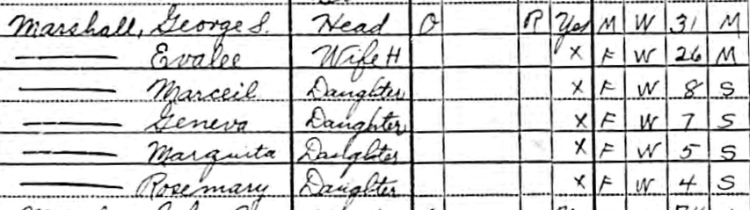 Marshall, George S. Head O R Yes M W 31 M
—— Evalee Wife H X F W 26 M
—— Marceil Daughter X F W 8 S
—— Geneva Daughter X F W 7 S
—— Marquita Daughter X F W 5 S
—— Rosemary Daughter X F W 4 S